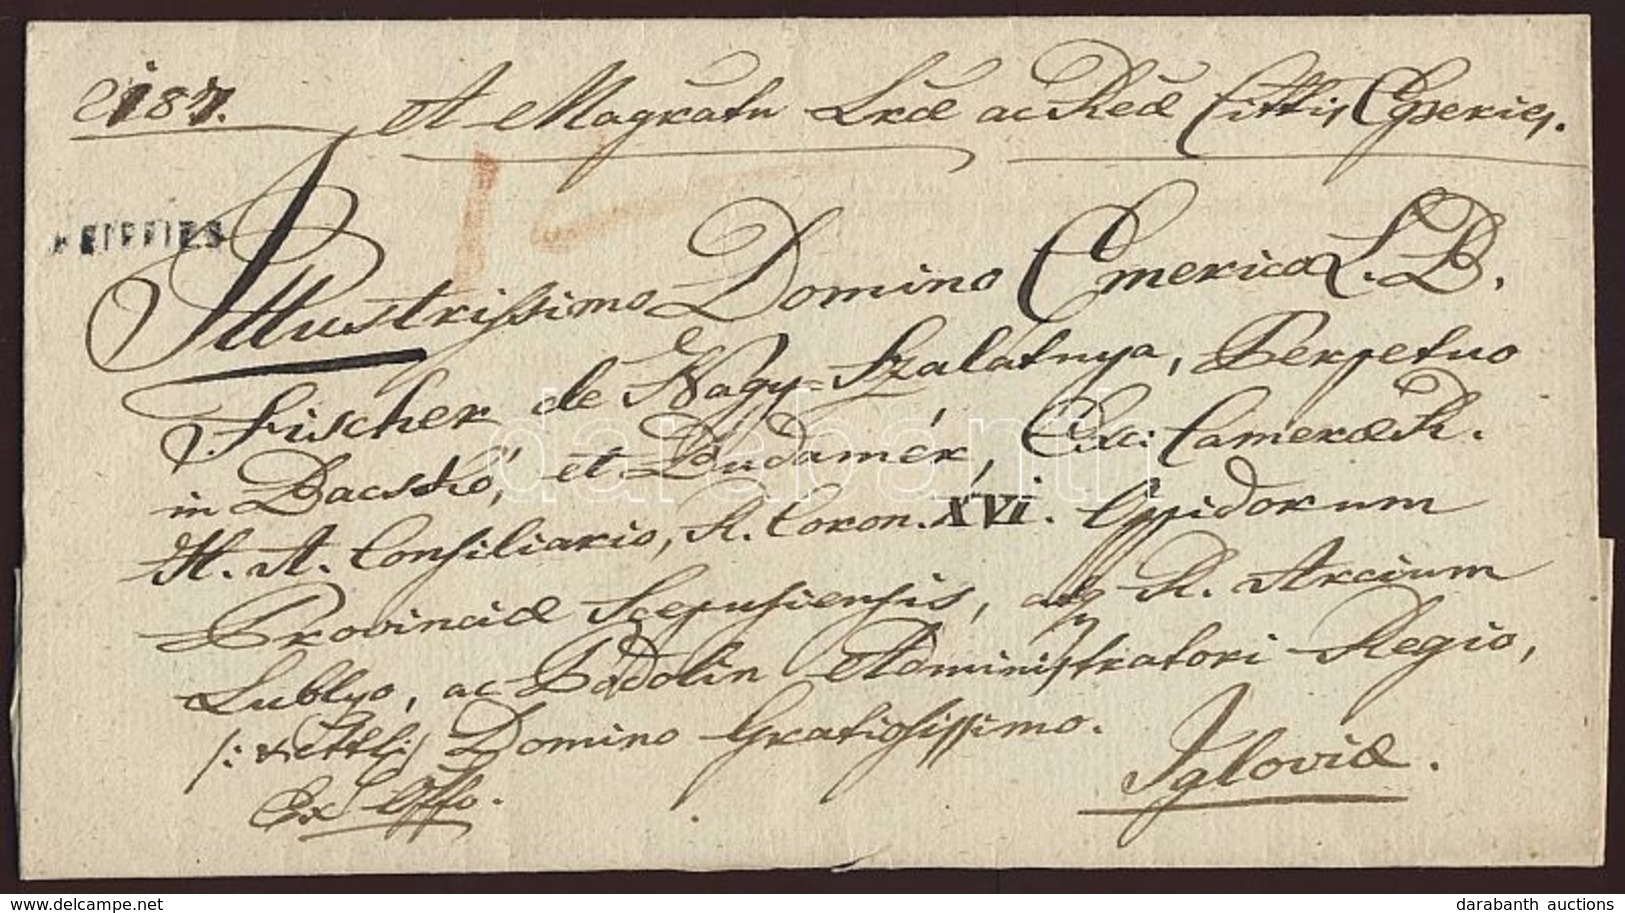 A Magratu Lrae ac Reae Cittis Epperies.
EPERIES
Illustrissimo Domino Emerico L. B.
Fischer de Nagy=Szalátnya, Perpetuo
in Bacskó, et Budamér, Exc: Camerae R.
H. A. Consiliario, R. Coron. XVI. Oppidorum
Provinciae Scepusiensis, atq R. Arcium
Lublyo, ac Podolin Administratori Regio,
/: titttl:/ Domino Gratiosissimo.
Ex Offo.
Igloviae.
darabanth
darabanth auctions